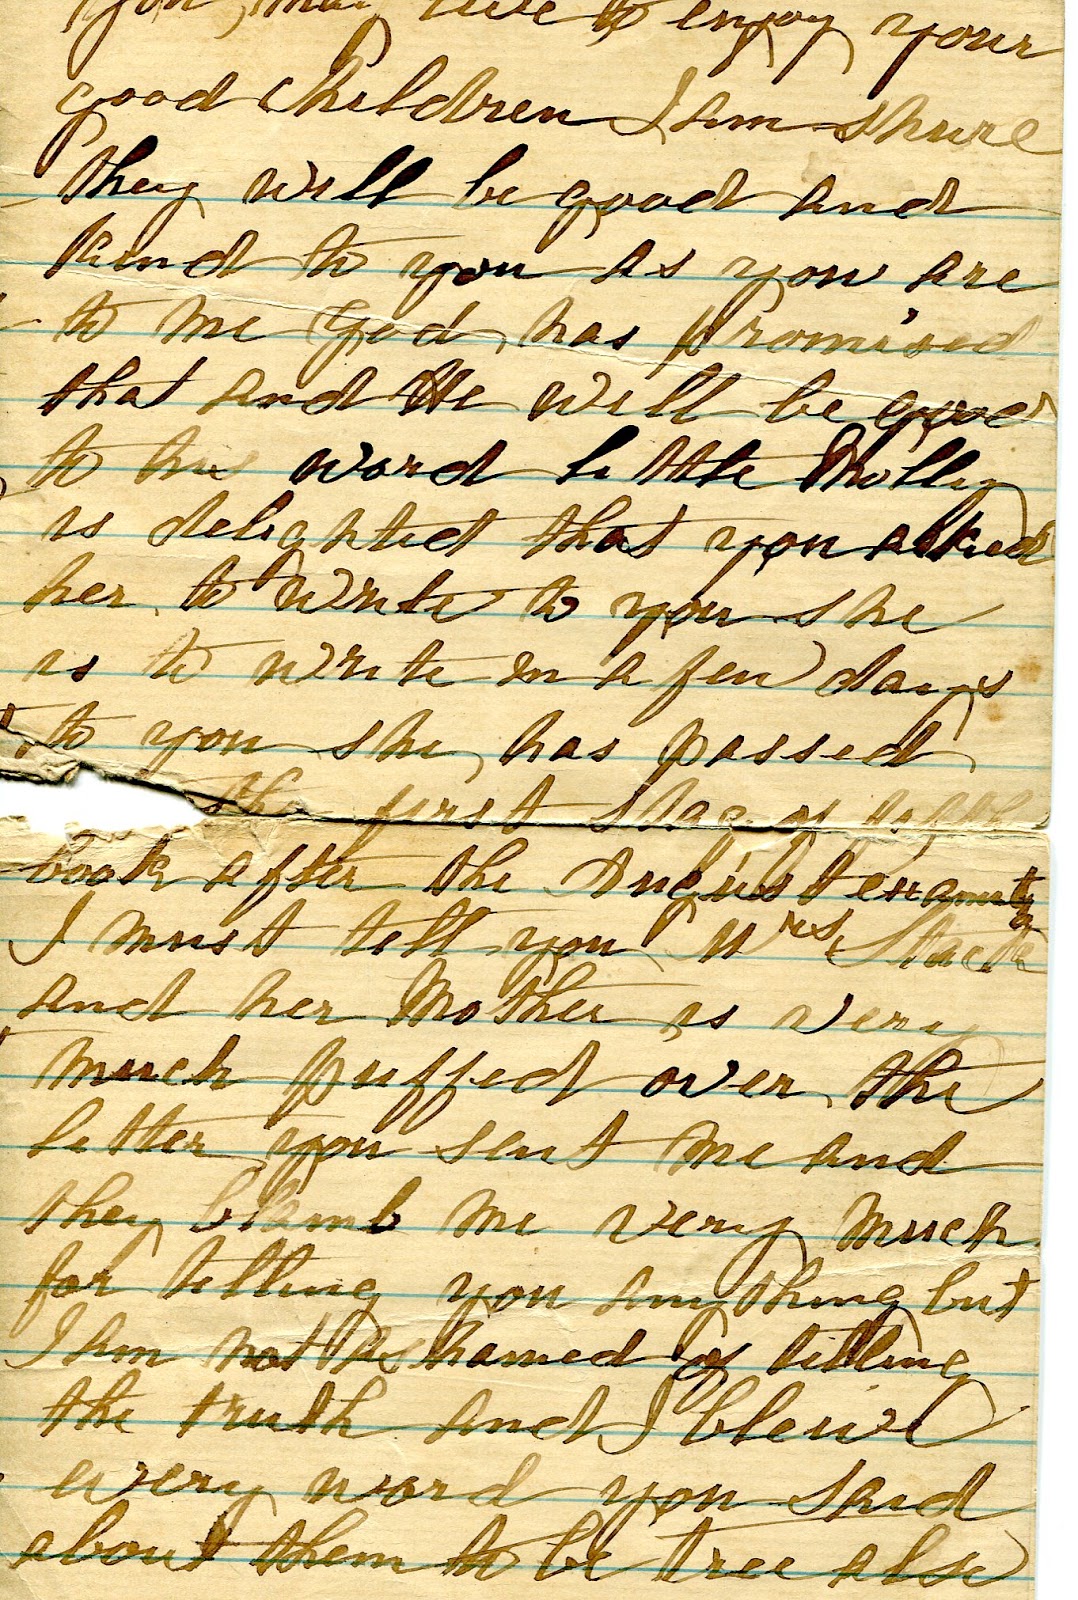 you may live to enjoy your
good children I am shure
they will be good and
kind to you as you are
to me God has promised
that and He will be good
to his word little Molly
is delighted that you asked
her to write to you she
is to write in a few days
to you she has passed
the first stage of
book after the August
I must tell you Mrs
and her Mother is very
much puffed over the
letter you sent me and
they blamb me very much
for telling you anything but
I am not ashamed of telling
the truth and I bleive
every word you said
about them to be tree alse